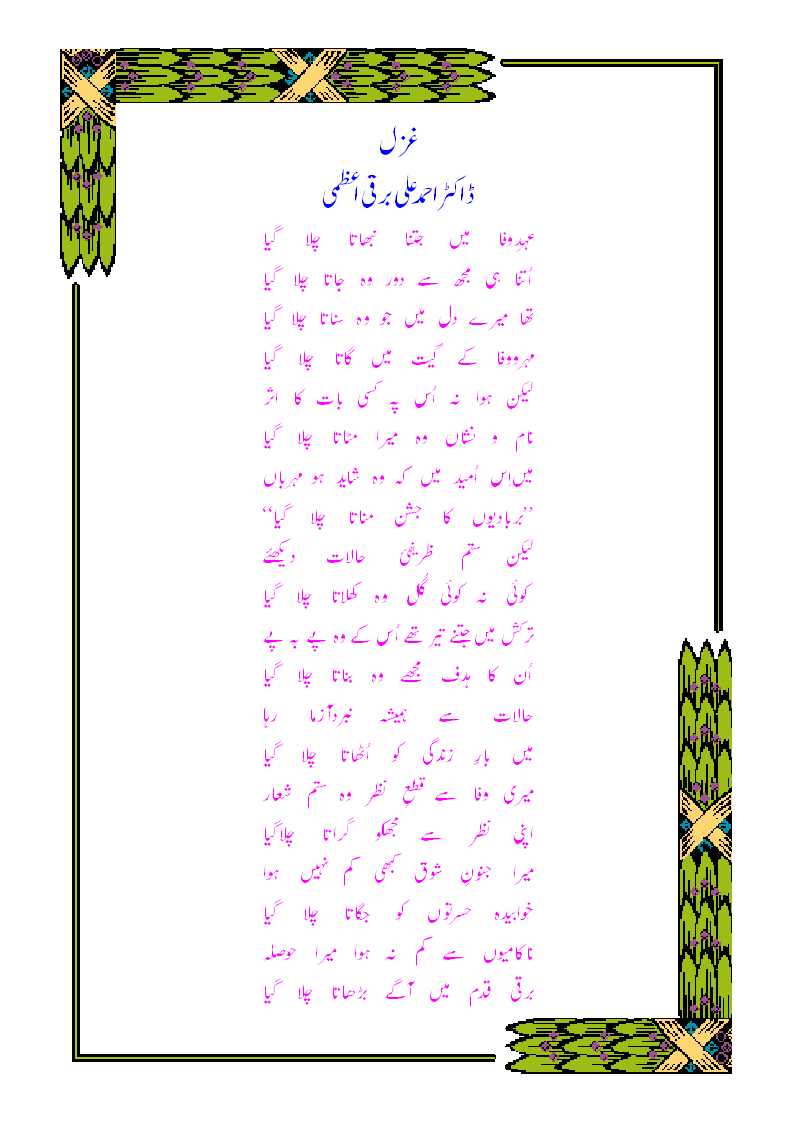 غزل
ڈاکٹر احمد علی برقی اعظمی
عہد وفا میں جتنا نبھاتا چلا گیا
اُتنا ہی مجھ سے دور وہ جاتا چلا گیا
تھا میرے دل میں جو وہ سناتا چلا گیا
مہرووفا کے گیت میں گاتا چلا گیا
لیکن ہوا نہ اُس پہ کسی بات کا اثر
نام و نشاں وہ میرا مٹاتا چلا گیا
میں اِس اُمید میں کہ وہ شاید ہو مہرباں
’’بربادیوں کا جشن مناتا چلا گیا‘‘
لیکن ستم ظریفئ حالات دیکھئے
کوئی نہ کوئی گُل وہ کھلاتا چلا گیا
ترکش میں جتنے تیر تھے اُس کے وہ پے بہ پے
اُن کا ہدف مجھے وہ بناتا چلا گیا
حالات سے ہمیشہ نبردآزما رہا
میں بارِ زندگی کو اُٹھاتا چلا گیا
میری وفا سے قطعِ نظر وہ ستم شعار
اپنی نظر سے مجھکو گراتا چلاگیا
میرا جنونِ شوق کبھی کم نہیں ہوا
خوابیدہ حسرتوں کو جگاتا چلا گیا
ناکامیوں سے کم نہ ہوا میرا حوصلہ
برقی قدم میں آگے بڑھاتا چلا گیا